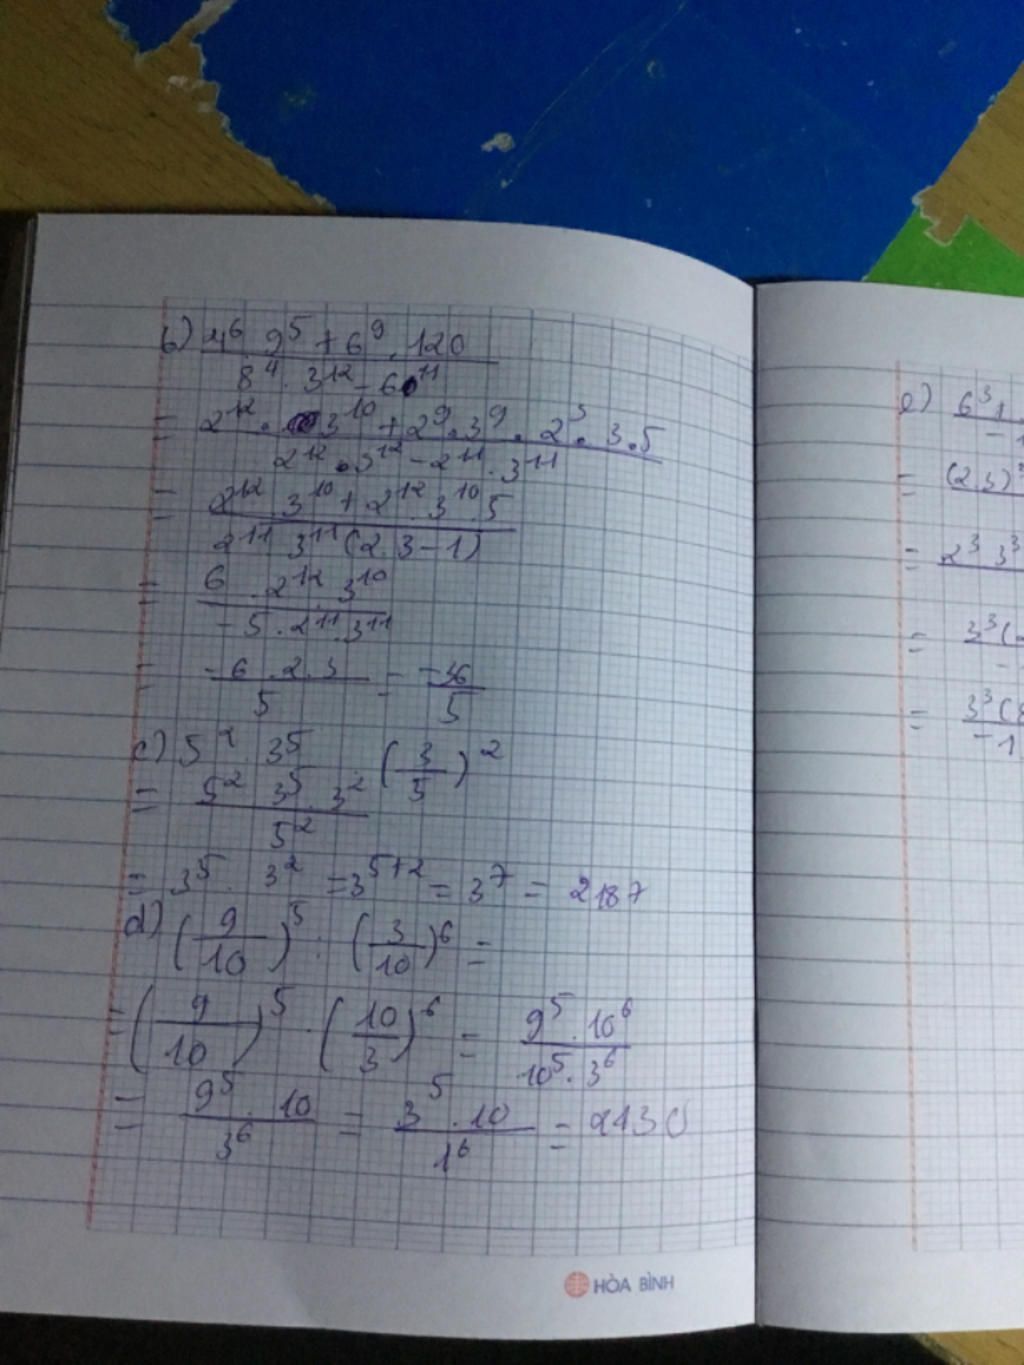 b) 4⁶ . 9⁵ + 6⁹ . 120
8⁴ . 3¹² - 6¹¹
= 2¹² . 3¹⁰ + 2⁹ . 3⁹ . 2³ . 3 . 5
2¹² . 3¹² - 2¹¹ . 3¹¹
= 2¹² 3¹⁰ + 2¹² . 3¹⁰ . 5
2¹¹ 3¹¹ (2 . 3 - 1)
= 6 . 2¹² . 3¹⁰
- 5 . 2¹¹ . 3¹¹
= - 6 . 2 . 3 = -36
5 5
c) 5² . 3⁵ . (3/5)²
= 5² 3⁵ . 3²
5²
= 3⁵ . 3² = 3⁵⁺² = 3⁷ = 2187
d) (9/10)⁵ : (3/10)⁶ =
= (9/10)⁵ . (10/3)⁶ = 9⁵ . 10⁶
10⁵ . 3⁶
= 9⁵ . 10 = 3⁵ . 10 = 2430
3⁶ 1⁶
HÒA BÌNH
e) 6³
= (2 3)
= 2³ 3³
= 3³ (
= 3³ (
- 1